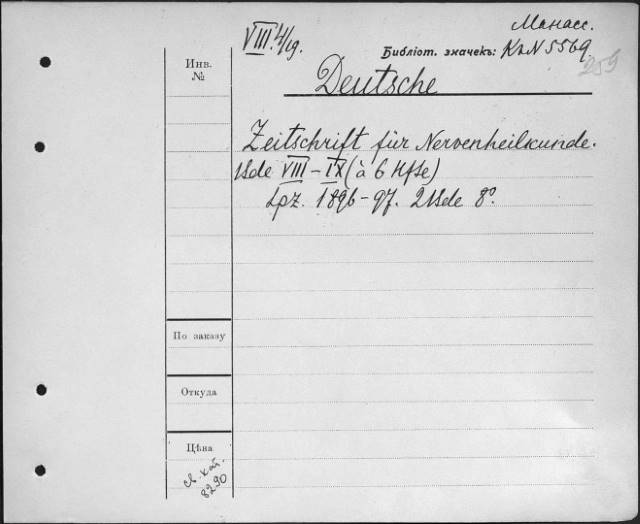 Манасс.
VIII. 4/19.
Библіот. значекъ: К к N 5569
259
Инв. №
Deutsche
Zeitschrift für Nervenheilkunde.
Bde VIII–IX (à 6 Hfte)
Lpz. 1896–97. 2 Bde 8º.
По заказу
Откуда
Цѣна
св. кат.
8290